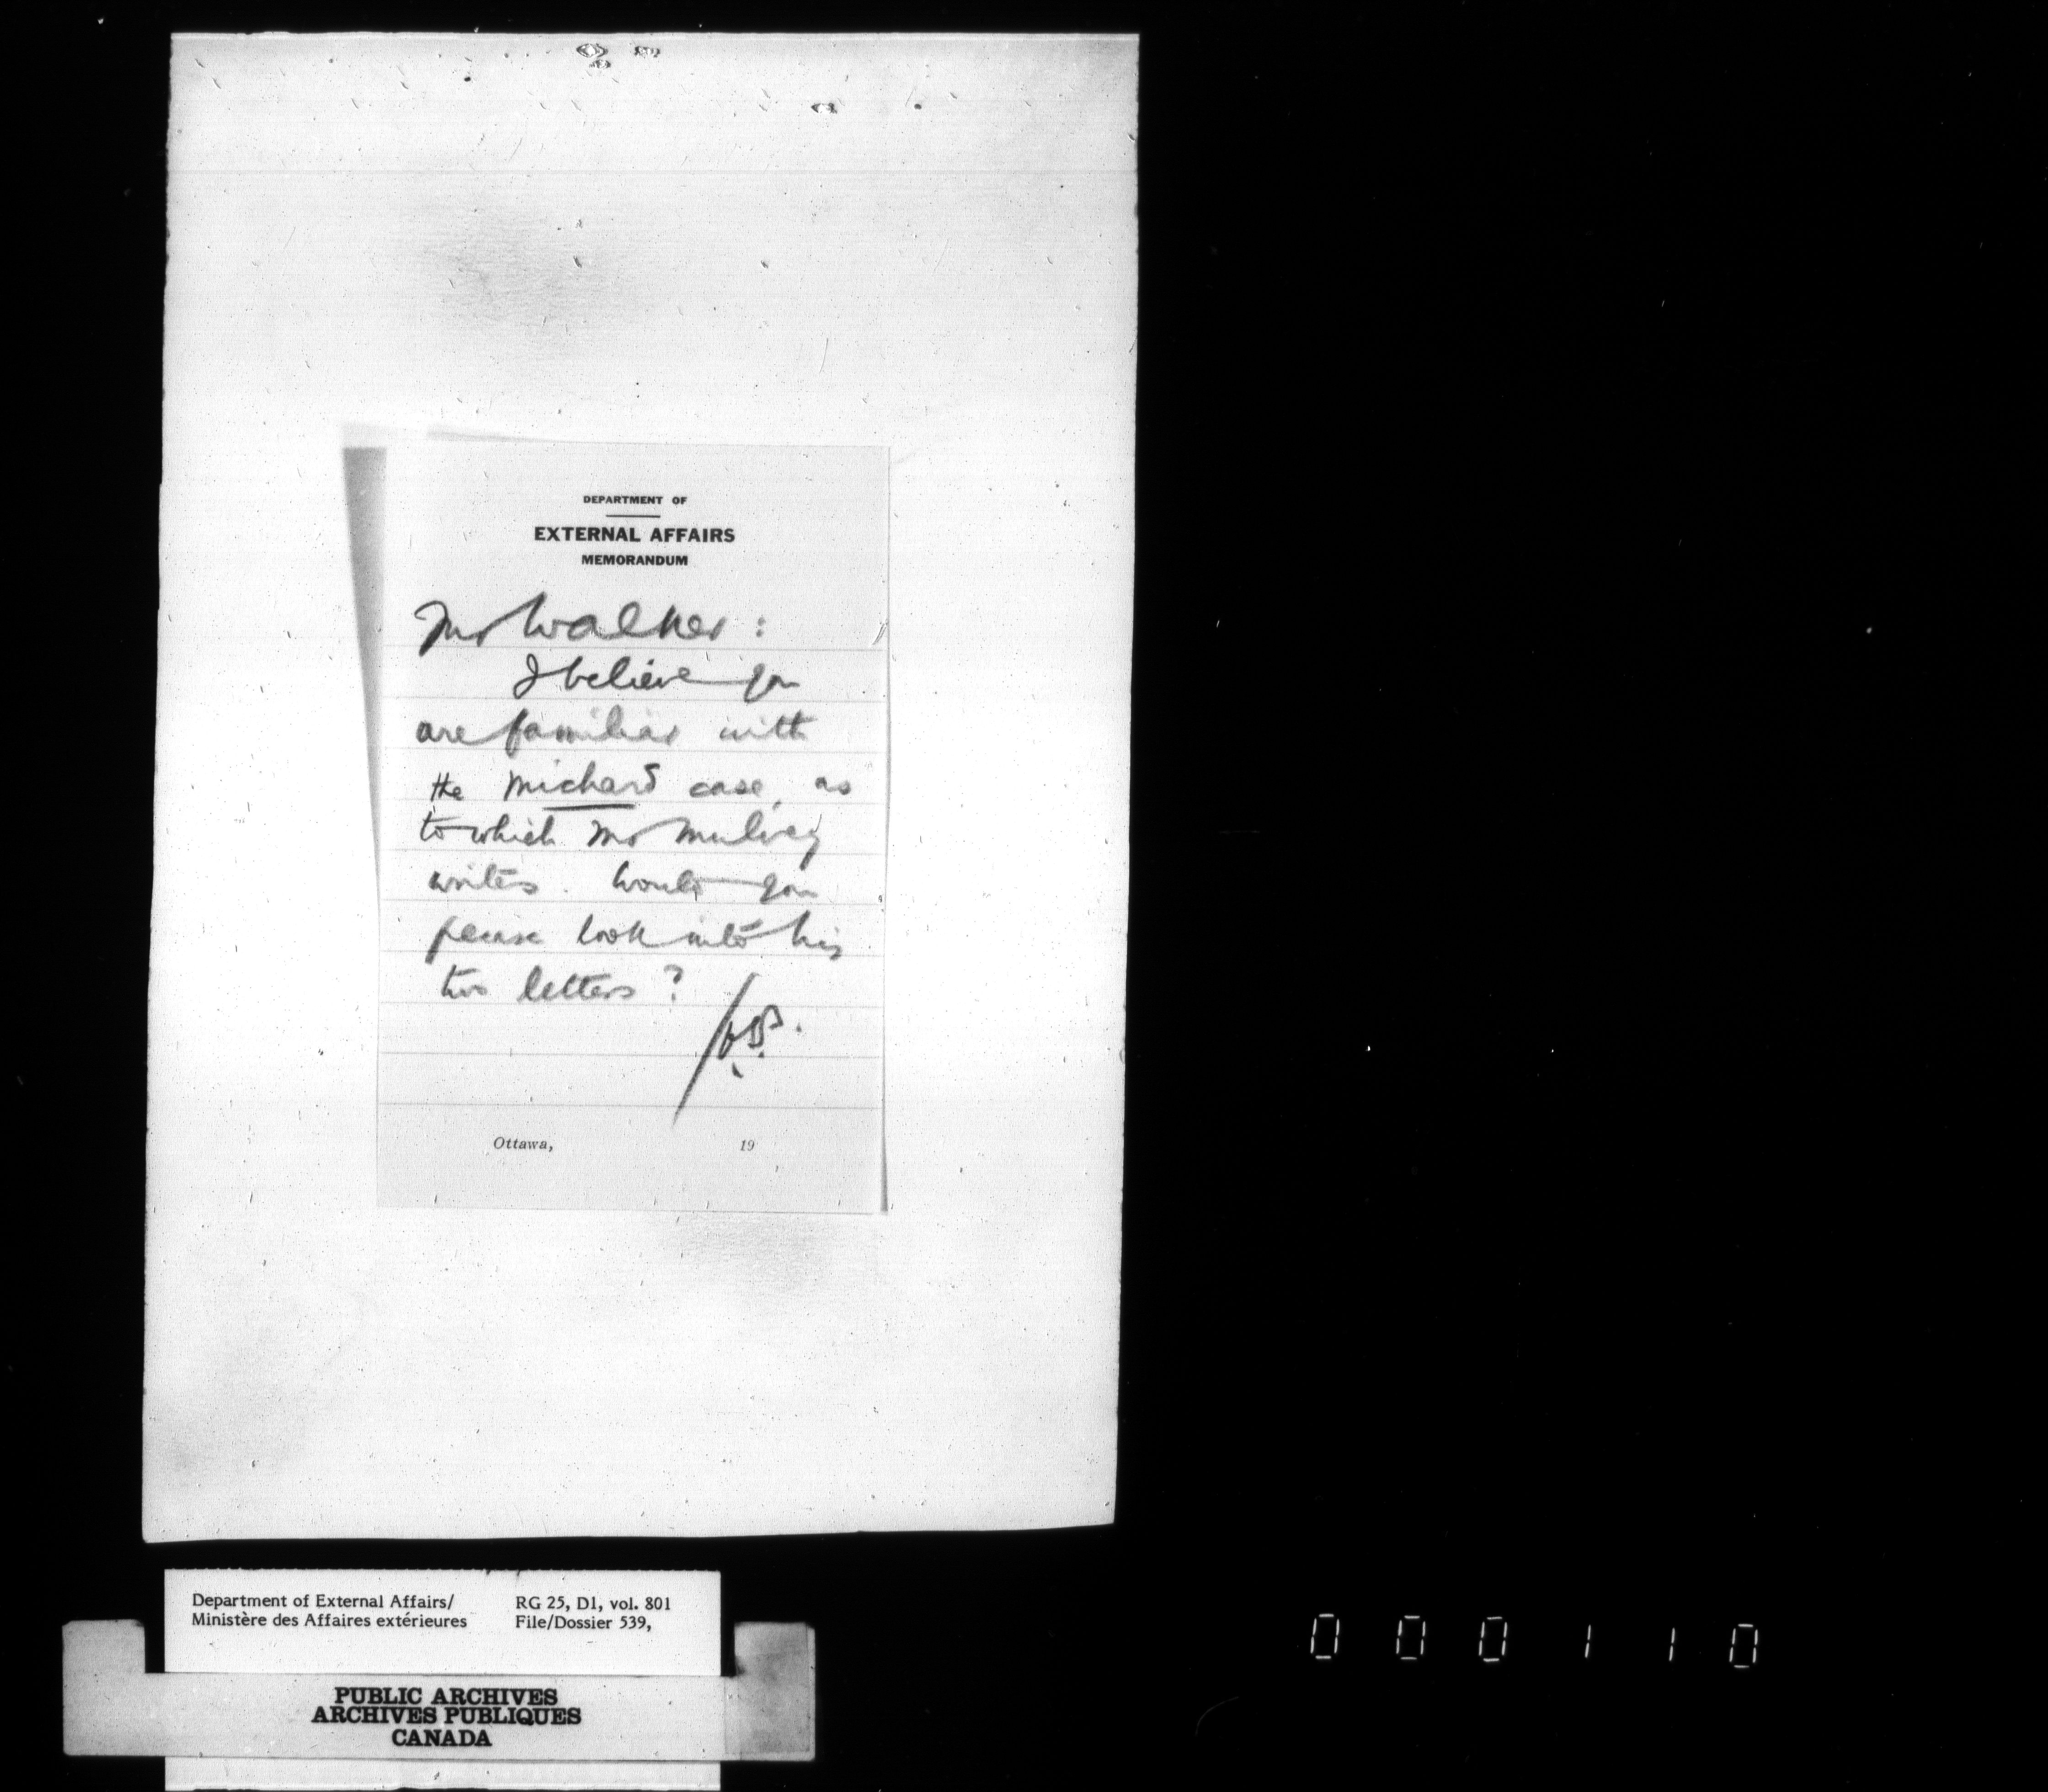 DEPARTMENT OF
EXTERNAL AFFAIRS
MEMORANDUM
Mr Walker:
I believe you
are familiar with
the Michard case, as
to which Mr Mulvey
writes. Would you
please look into his
two letters?
Ottawa, 19
Department of External Affairs/ RG 25, D1, vol. 801
Ministère des Affaires extérieures File/Dossier 539,
PUBLIC ARCHIVES
ARCHIVES PUBLIQUES
CANADA
000110